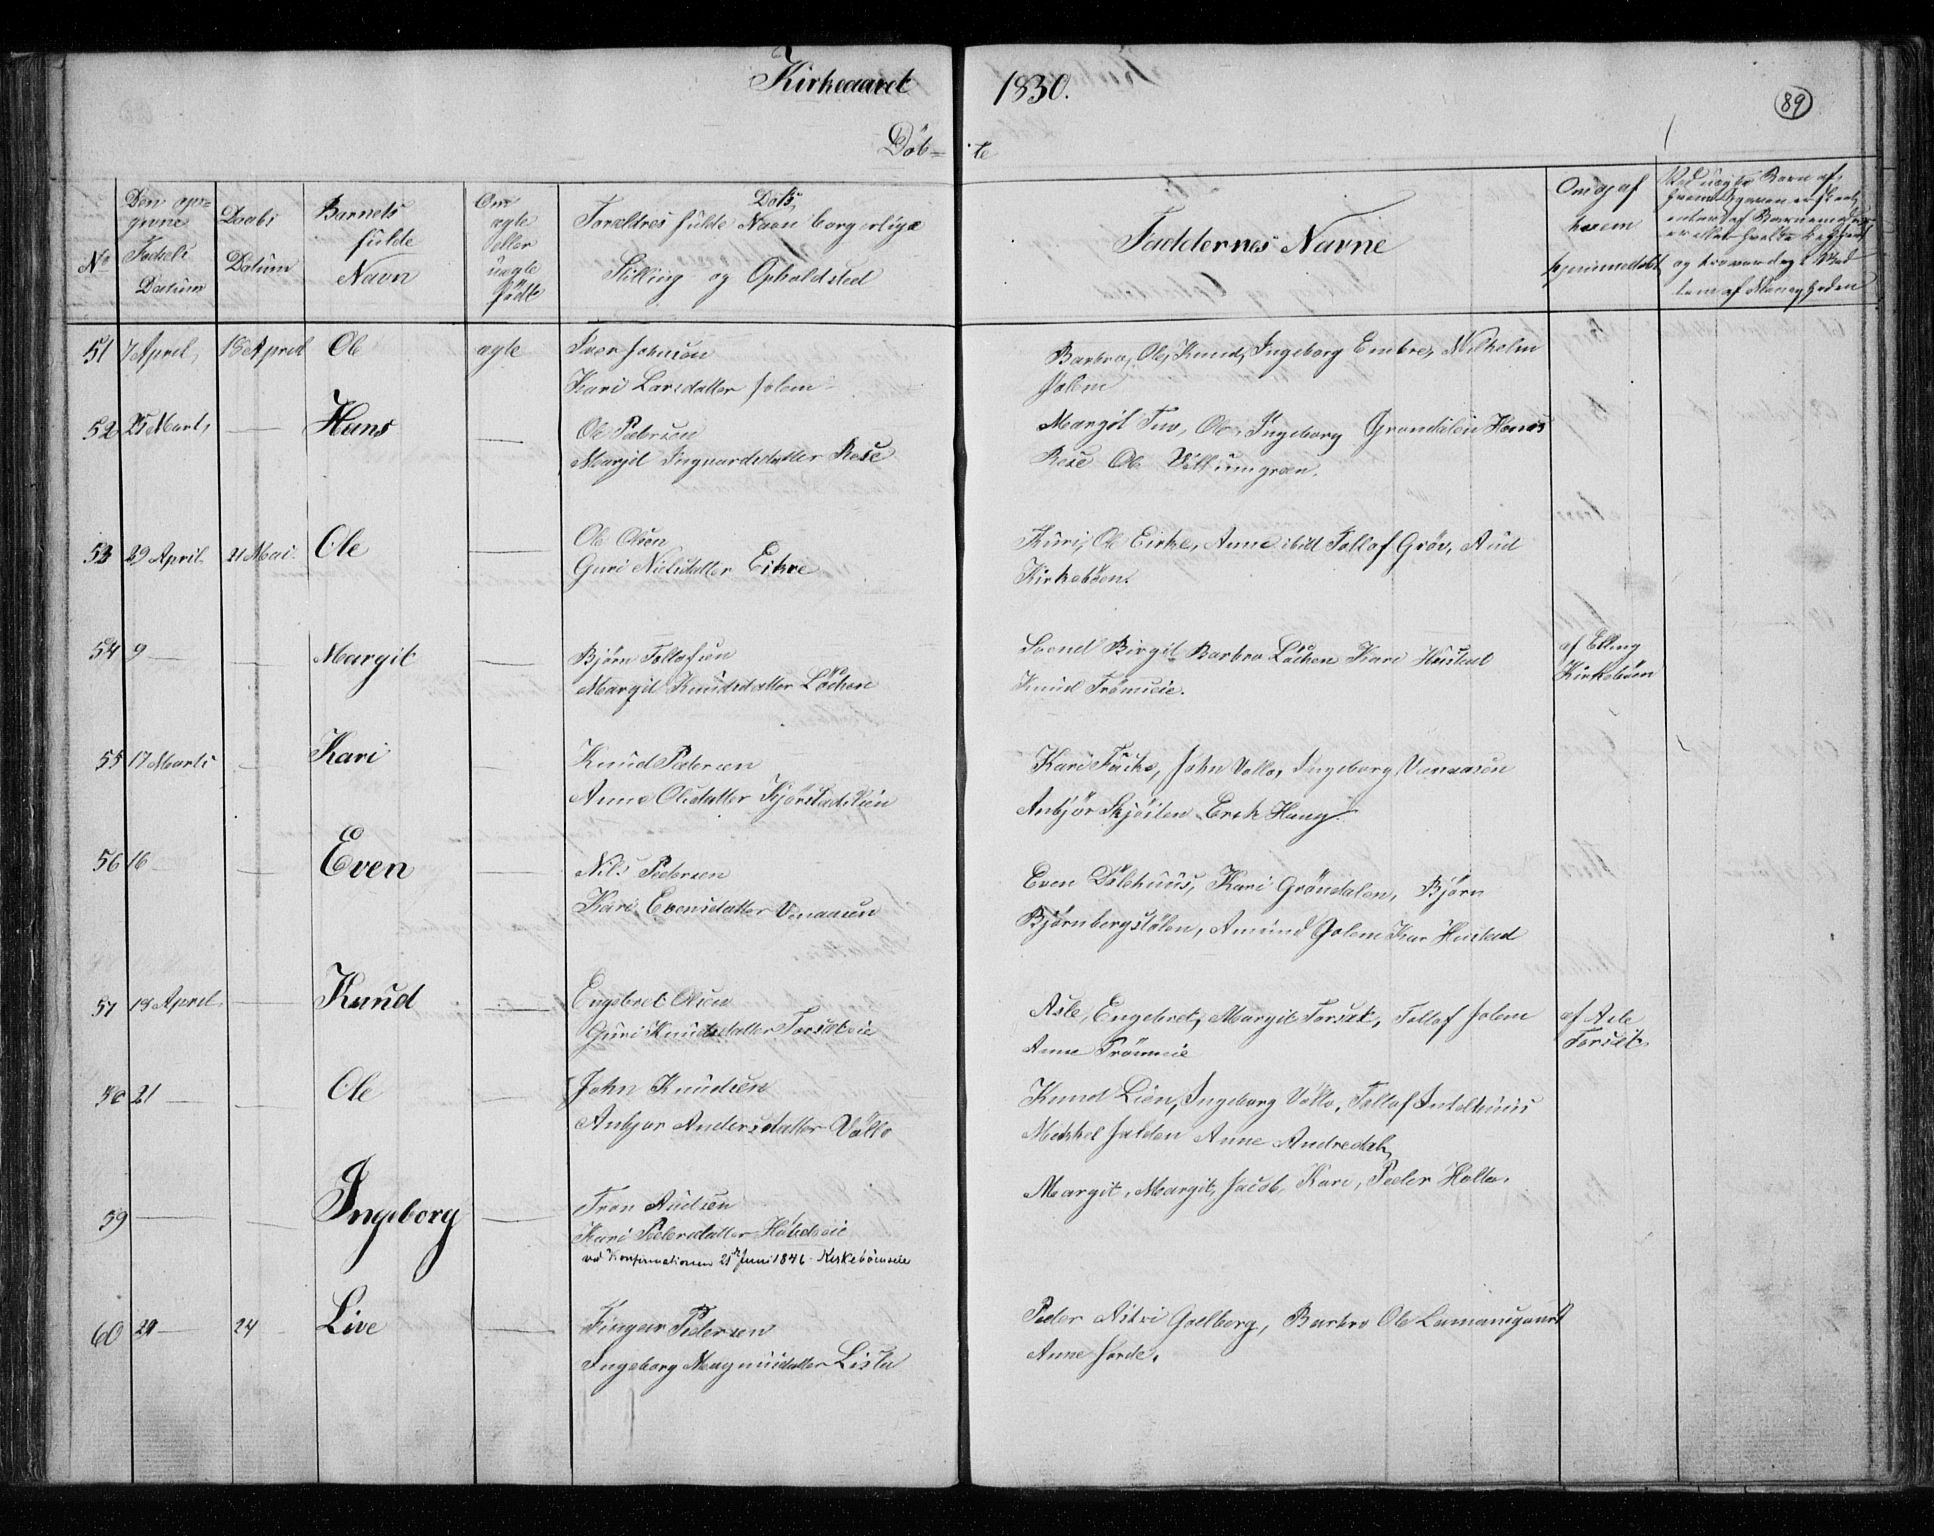 Kirkeaaret 1830.
89
Döb= te
No
Den op=
givne
Födsels
Datum
Daabs
Datum
Barnets
fulde
Navn
Om
ægte
eller
uægte
födte
Dets
Forældres fulde Navn borgerlige
Stilling og Opholdsted
Faddernes Navne
Om og af
hvem
hjemmedöbt
51 7 April, 18 April Ole ægte Iver Johnsen
Kari Larsdatter Solem
Barbro, Ole, Knud, Ingeborg Embre, Wilhelm
Solem
52 25 Marts, — Hans — Ole Pedersen
Margit Ingvardsdatter Rese
Margit Tuv, Ole, Ingeborg Grøndalen Hans
Rese Ole
53 29 April 21 Mai Ole — Ole Olsen
Guri Nielsdatter Eikre
Guri, Ole Eikre, Anne ibid Tollof Gröv, Aud
Kirkebøen.
54 9 — — Margit — Bjørn Tollofsen
Margit Knudsdatter Löchen
Svend Birgit Barbro Löchen Kari Hustad
Knud Trömeie.
af Elling
Kirkebøen
55 17 Marts — Kari — Knud Pedersen
Anne Olsdatter
Kari Fucke, John Vollo, Ingeborg Venaasen
Anbjör Skjöilen Erik Haug
56 16 — — Even — Nils Pedersen
Kari Evensdatter Venaasen
Even Dölehuus, Kari Gröndalen, Bjørn
Bjørnbergstölen, Amund Golem Kari Hustad
57 18 April — Knud — Engebret Olsen
Guri Knudsdatter Torseteie
Asle, Engebret, Margit Torset, Tollof Solem
Anne Trömeie
af Asle
Torset
58 21 — — Ole — John Knudsen
Anbjor Andersdatter Vollo
Knud Lien, Ingeborg Vollo, Tollof
Mekkel Anne Andredal,
59 — — Ingeborg — Tron Audsen
Kari Pedersdatter
ved Konfirmationen 21de Juni 1846 - Kirkebøeneie
Margit, Margit, Jacob, Kari, Peder Holto.
60 29 — 24 Live — Fingar Pedersen
Ingeborg Magnusdatter Listu
Peder Astri Golberg, Barbro Ole
Anne